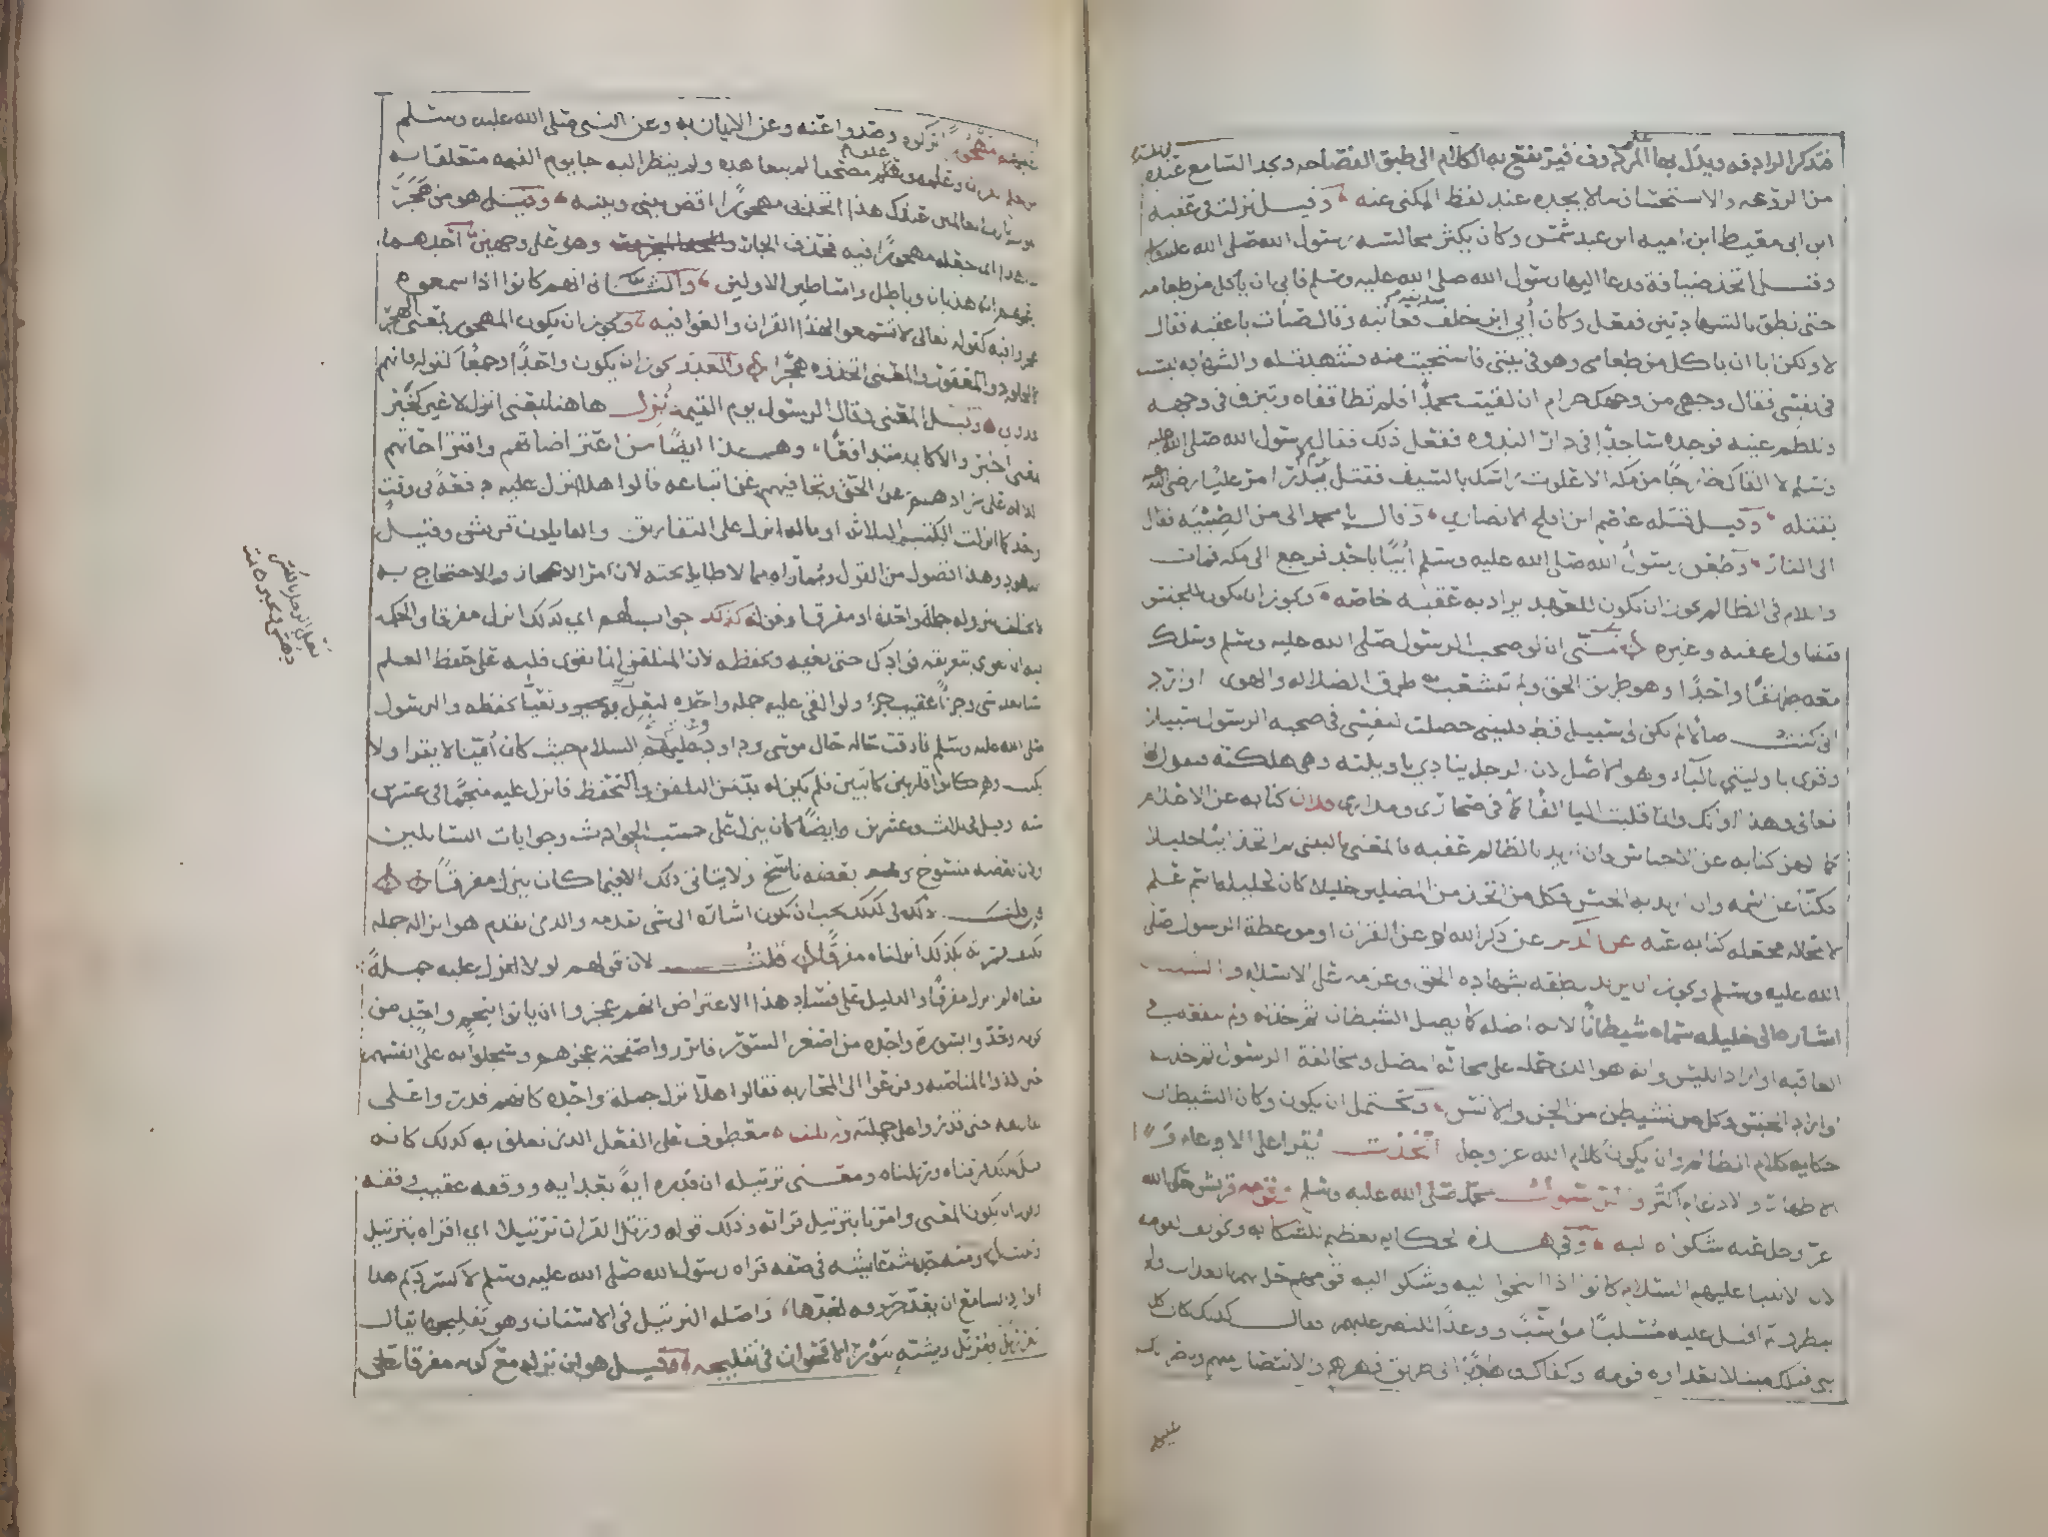 فتذكر الرادفة ويدل بها على المردوف فيرتفع به الكلام الى طبق الفصاحة ويجد السامع عنده
من الروعه والاستحسان مالا يجده عند لفظ المكنى عنه وقيل نزلت في عقبه
ابن ابي معيط ابن اميه ابن عبد شمس وكان يكثر مجالسه رسول الله صلى الله عليه وسلم
وقيل اتخذ ضيافة فدعا اليها رسول الله صلى الله عليه وسلم فابى ان ياكل من طعامه
حتى نطق بالشهادتين ففعل وكان أبي ابن خلف صديقه فعاتبه وقال صبأت يا عقبه فقال
لا ولكن ابا ان ياكل من طعامي وهو في بيتي فاستحييت منه فشهدت له والشهادة ليست
في نفسي فقال وجهي من وجهك حرام ان لقيت محمدًا فلم تطا قفاه وتبزق في وجهه
وتلطم عينه فوجده ساجدًا في دار الندوه ففعل ذلك فقال رسول الله صلى الله عليه
وسلم لا القاك خارجًا من مكه الا علوت راسك بالسيف فقتل يوم بدر امر عليًا رضي الله عنه
بقتله وقيل قتله عاصم ابن افلح الانصاري وقال يا محمد الى من الصبية فقال
الى النار وطعن رسول الله صلى الله عليه وسلم أبيًا باحد فرجع الى مكه فمات
واللام في الظالم يجوز ان يكون للعهد يراد به عقبه خاصه ويجوز ان يكون للجنس
فيتناول عقبه وغيره تمنى ان لو صحب الرسول صلى الله عليه وسلم وسلك
معه طريقًا واحدًا وهو طريق الحق ولم تتشعب به طرق الضلاله والهوى او اراد
اني كنت ضالًا لم يكن لي سبيل قط فليتني حصلت لنفسي في صحبه الرسول سبيلا
وقرى يا ويلتي بالياء وهو الاصل لان الرجل ينادي يا ويلته وهي هلكته يقول لها
تعالي فهذا اوانك وانما قلبت اليا الفًا كما في صحارى ومدارى فلان كنايه عن الاعلام
كما الهن كنايه عن الاجناس فان اريد بالظالم عقبه فالمعنى ليتني لم اتخذ ابيًا خليلا
فكنّا عن اسمه وان اريد به الجنس فكل من اتخذ من المضلين خليلا كان لخليله اسم علم
لا محاله فجعله كنايه عنه عن الذكر عن ذكر الله او عن القران او موعظة الرسول صلى
الله عليه وسلم ويجوز ان يريد نطقه بشهاده الحق وعزمه على الاسلام والشيطان
اشاره الى خليله سماه شيطانًا لانه اضله كما يضل الشيطان ثم خذله ولم ينفعه في
العاقبه او اراد ابليس وانه هو الذي حمله على مخالّه المضل ومخالفة الرسول ثم خذله
او اراد الجنس وكل من تشيطن من الجن والانس ويحتمل ان يكون وكان الشيطان
حكايه كلام الظالم وان يكون كلام الله عز وجل اتخذت يقرا على الادغام و
الاظهار والادغام اكثر وقال الرسول محمد صلى الله عليه وسلم وقومه قريش حكى الله
عز وجل عنه شكواه اليه وفي هذه الحكايه تعظيم للشكايه وتخويف لقومه
لان الانبيا عليهم السلام كانوا اذا التجوا اليه وشكوا اليه قومهم حل بهم العذاب ولم
ينظروا ثم اقبل عليه مسليًا مؤنسًا وواعدًا النصر عليهم فقال كذلك كان كل
نبي قبلك مبتلا بعداوه قومه وكفاك بي هاديًا الى طريق قهرهم والانتصار منهم وناصرًا لك
عليهم
مهجورًا تركوه وصدوا عنه وعن الايمان به وعن النبي صلى الله عليه وسلم
من تعلم القران وعلمه وعلق مصحفًا لم يتعاهده ولم ينظر اليه جا يوم القيمه متعلقًا به
يقول يا رب العالمين عبدك هذا اتخذني مهجورًا اقض بيني وبينه وقيل هو من هجر
اذا هذا اي جعله مهجورًا فيه فحذف الجار وهو على وجهين احدهما
زعمهم انه هذيان وباطل واساطير الاولين والثاني انهم كانوا اذا سمعوه
هجروا فيه كقوله تعالى لا تسمعوا لهذا القران والغوا فيه ويجوز ان يكون المهجور بمعنى الهجر
كالمجلود والمعقود والمعنى اتخذوه هجرًا والعدو يجوز ان يكون واحدًا وجمعًا كقوله فانهم
عدو لي وقيل المعنى وقال الرسول يوم القيمه نزل هاهنا بمعنى انزل لا غير كخبّر
بمعنى اخبر والا كان متدافعًا وهذا ايضًا من اعتراضاتهم واقتراحاتهم
الداله على شرادهم عن الحق وتجافيهم عن اتباعه قالوا هلا انزل عليه دفعةً في وقتٍ
واحد كما انزلت الكتب الثلاثه وما له انزل على التفاريق والقايلون قريش وقيل
اليهود وهذا فضول من القول ومماراه بما لا طايل تحته لان امر الاعجاز والاحتجاج به
لا يختلف بنزوله جملة واحدة او مفرقا وقوله كذلك جواب لهم اي كذلك انزل مفرقا والحكمه
فيه ان نقوي بتفريقه فوادك حتى تعيه وتحفظه لان المتلقن انما يقوى قلبه على حفظ العلم
شيا بعد شي وجزأً عقيب جزءٍ ولو القي عليه جمله واحده لبعل به وتعيّا بحفظه والرسول
صلى الله عليه وسلم فارقت حاله حال موسى وداود وعيسى عليهم السلام حيث كان أميًا لا يقرا ولا
يكتب وهم كانوا قارين كاتبين فلم يكن له بد من التلقن والتحفظ فانزل عليه منجمًا في عشرين
سنه وقيل في ثلاث وعشرين وايضًا كان ينزل على حسب الحوادث وجوابات السايلين
ولان بعضه منسوخ وبعضه ناسخ ولا يتاتى ذلك الا فيما كان ينزل مفرقًا
فان قلت ذلك في كذلك يجب ان يكون اشاره الى شي تقدمه والذي تقدم هو انزاله جمله
فكيف فسرته بكذلك انزلناه مفرقًا قلت لان قولهم لولا انزل عليه جملةً
معناه لم نزل مفرقًا والدليل على فساد هذا الاعتراض انهم عجزوا ان ياتوا بنجم واحد من
نجومه وتحدوا بسورة واحده من اصغر السور فابرزوا صفحة عجزهم وسجلوا به على انفسهم
حين لاذوا بالمناصبه وفزعوا الى المحاربه فقالوا هلا نزل جملةً واحده كانهم قدروا على
تفاريقه حتى قدروا على جملته ورتلناه معطوف على الفعل الذي تعلق به كذلك كانه
قال كذلك فرقناه ورتلناه ومعنى ترتيله ان قدره ايةً بعد ايه ووقعه عقيب وقفه
ويجوز ان يكون المعنى وامرنا بترتيل قراته وذلك قوله ورتل القران ترتيلا اي اقراه بترتيل
وتثبت ومنه حديث عايشه في صفه قراه رسول الله صلى الله عليه وسلم لا كسردكم هذا
لو اراد السامع ان يعد حروفه لعدها واصله الترتيل في الاسنان وهو تفليجها يقال
ثغر رتل ومرتل ويشبه بنور الاقحوان في تفليجه وقيل هو ان نزله مع كونه مفرقا على